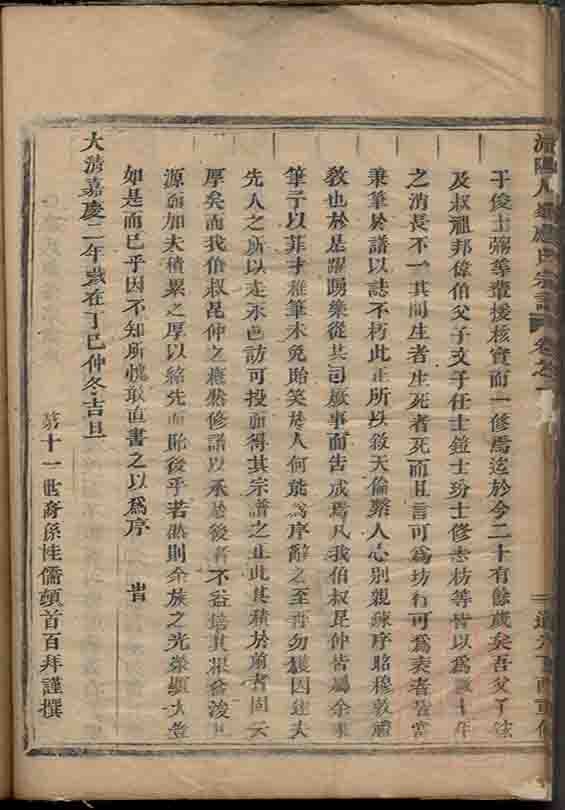 陽 氏宗譜 卷之一
于俊士彌等遵援核實而一修焉迄於今二十有餘歲矣吾父子
及叔祖邦偉伯父子文子任士鎧士玢士修志枋等皆以為 年
之消長不一其間生者生死者死而且言可為坊行可為表者豈
秉筆於譜以誌不朽此正所以敘天倫繫人心別親疎序昭穆敦禮
教也於是踴躍樂從共司厥事而告成焉凡我伯叔昆仲皆屬余秉
筆予以菲才雅筆未免貽笑於人何能為序辭之至再勿獲因思
先人之所以走永邑訪可投而得其宗譜之止此其積於前者固云
厚矣而我伯叔昆仲之 然修譜以承於後者不益培其根益浚
源而加夫積累之厚以紹先而貽後乎若然則余族之光榮顯大豈
如是而已乎因不知所愧敢直書之以為序 旹
大清嘉慶二年歲在丁巳仲冬吉旦
第十一世裔孫性儒頓首百拜謹撰